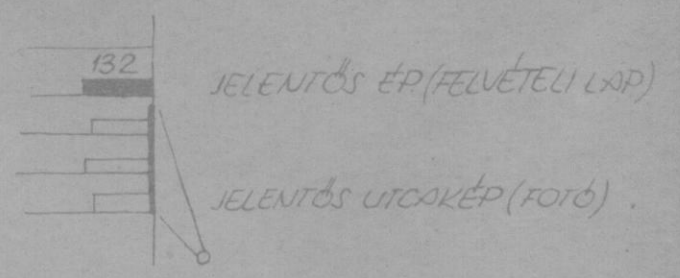 132
JELENTŐS ÉP (FELVÉTELI LAP)
JELENTŐS UTCAKÉP (FOTÓ).